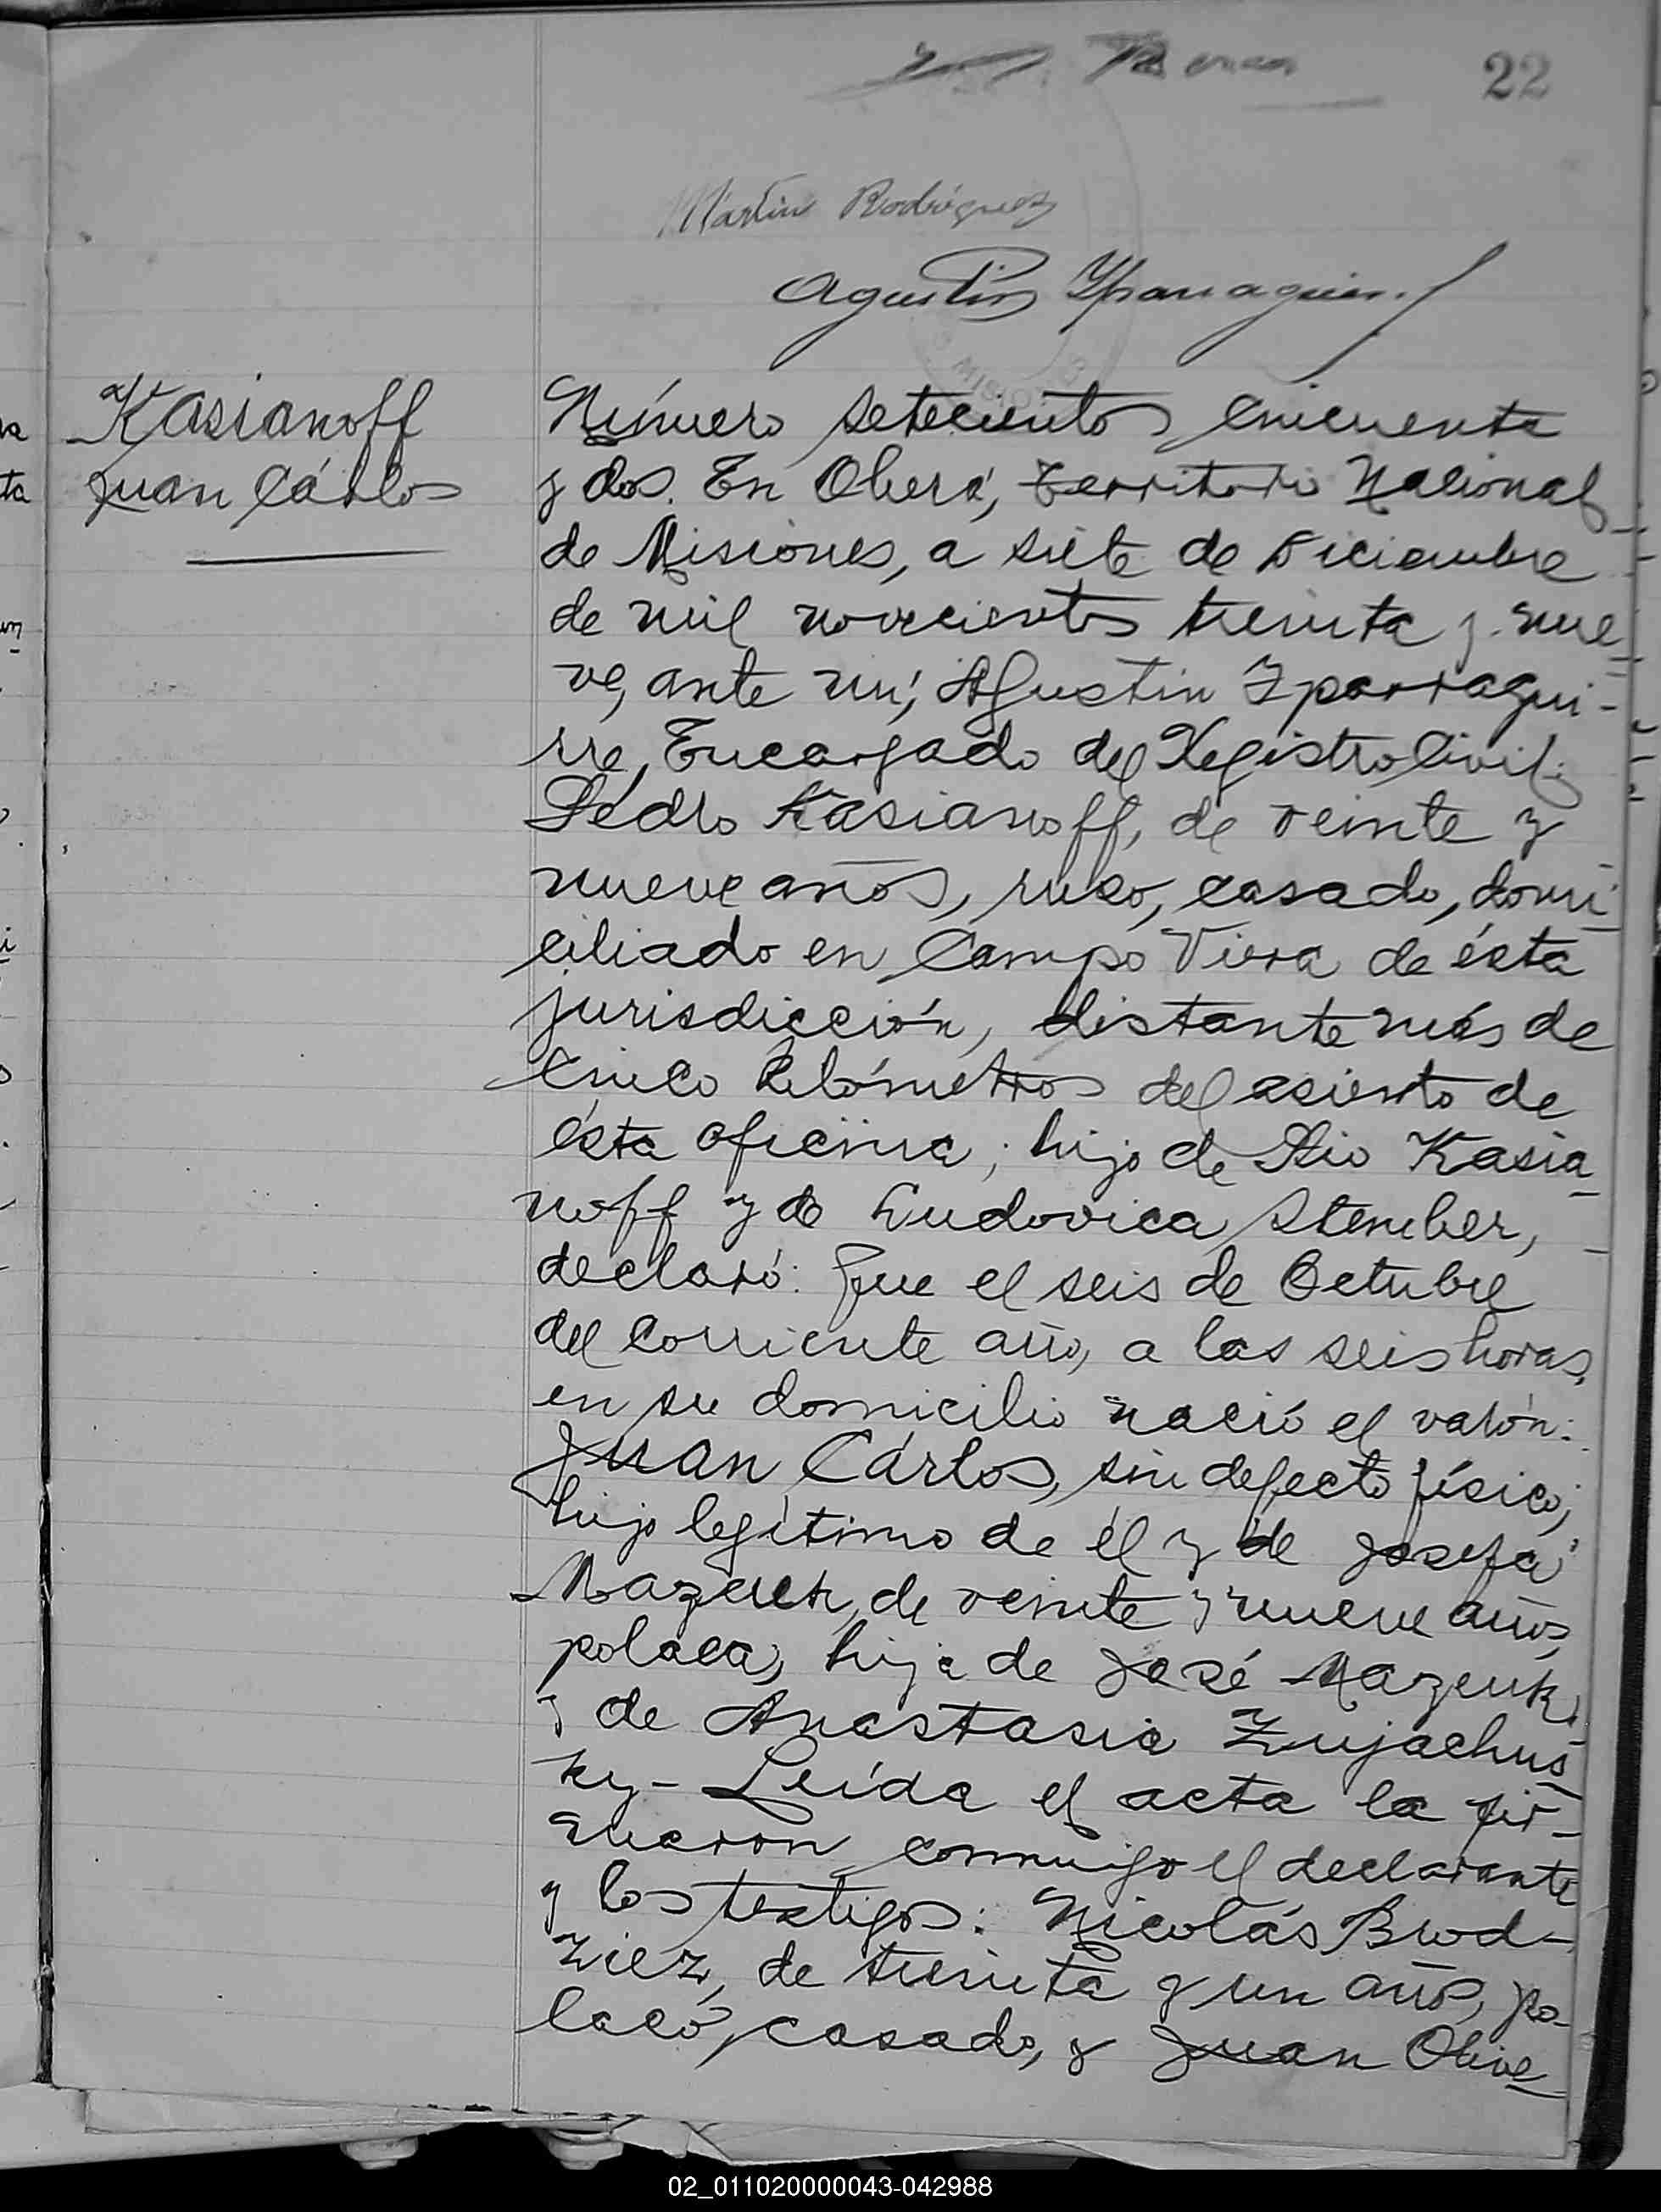 22
Martin Rodriguez
Agustin Yparraguirre
MISIONES
Kasianoff
Juan Cárlos
Número setecientos cincuenta
y dos. En Oberá, Territorio Nacional
de Misiones, a siete de Diciembre
de mil novecientos treinta y nue-
ve, ante mí, Agustin Yparragui-
rre, Encargado del Registro Civil;
Pedro Kasianoff, de veinte y
nueve años, ruso, casado, domi-
ciliado en Campo Viera de ésta
jurisdicción, distante más de
cinco kilómetros del asiento de
ésta oficina; hijo de Kasia-
noff y de Ludovica Stember,
declaró: Que el seis de Octubre
del corriente año, a las seis horas,
en su domicilio nació el varón:
Juan Cárlos, sin defecto físico;
hijo legítimo de él y de Josefa
Mazeuk, de veinte y nueve años,
polaca, hija de José Mazeuk,
y de Anastasia Zujachus-
ky- Leída el acta la fir-
maron conmigo el declarante
y los testigos: Nicolás Brod-
ziez, de treinta y un años, po-
laco, casado, y Juan Olive-
02_011020000043-042988